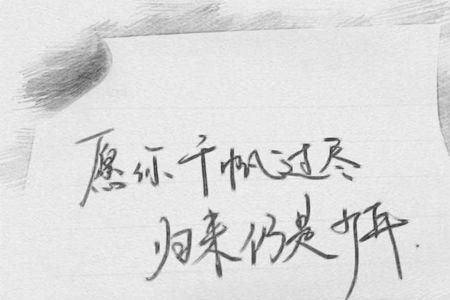 愿你千帆过尽
归来仍是少年.